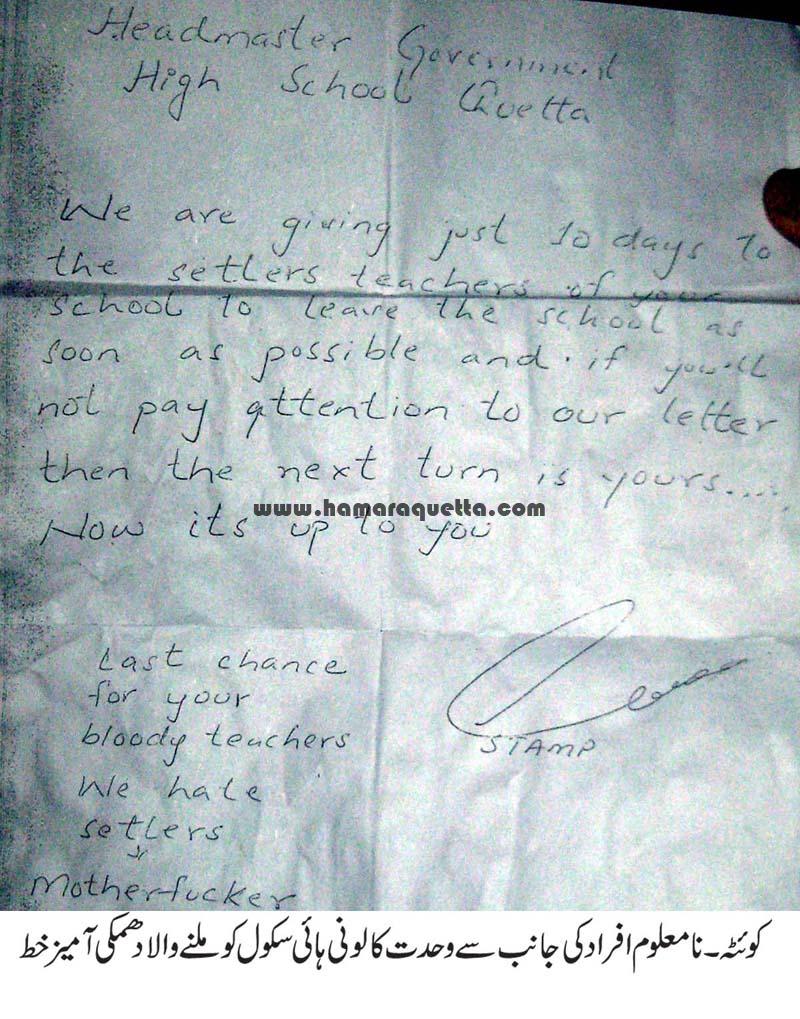 Headmaster Government
High School Quetta
We are giving just 10 days to
the setlers teachers of your
school to leave the school as
soon as possible and. if you'll
not pay attention to our letter
then the next turn is yours.....
www.hamaraquetta.com
Now its up to you
Last chance
for your
bloody teachers
We hate
setlers
Motherfucker
STAMP
کوئٹہ۔ نامعلوم افراد کی جانب سے وحدت کالونی ہائی سکول کو ملنے والا دھمکی آمیز خط